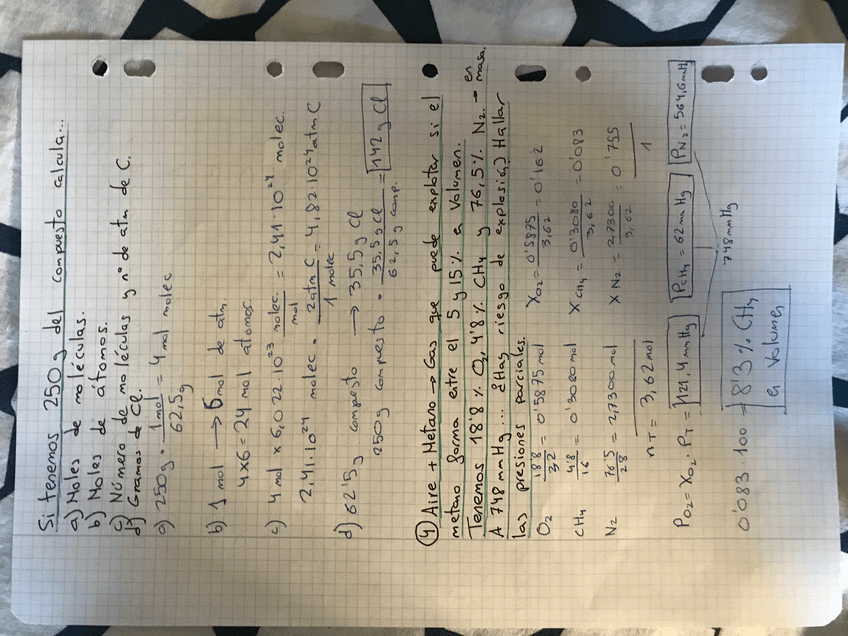 Si tenemos 250g del compuesto calcula...
a) Moles de moléculas.
b) Moles de átomos.
c) Número de moléculas y nº de atm de C.
d) Gramos de Cl.
a) 250g · 1mol / 62,5g = 4 mol molec
b) 1 mol → 6 mol de atm
4x6 = 24 mol átomos.
c) 4 mol x 6,022·10²³ molec. / mol = 2,41·10²⁴ molec.
2,41·10²⁴ molec · 2atm C / 1 molec = 4,82·10²⁴ atm C
d) 62'5g compuesto → 35,5g Cl
250g compuesto · 35,5g Cl / 62,5g comp. = 142g Cl
4) Aire + Metano → Gas que puede explotar si el
metano forma entre el 5 y 15% en volumen.
Tenemos 18'8% O₂, 4'8% CH₄ y 76,5% N₂ → en masa.
A 748 mmHg... ¿Hay riesgo de explosión? Hallar
las presiones parciales.
O₂ 18'8/32 = 0'5875 mol XO₂ = 0'5875/3,62 = 0'162
CH₄ 4'8/16 = 0'3080 mol XCH₄ = 0'3080/3,62 = 0'083
N₂ 76'5/28 = 2,7300 mol XN₂ = 2,7300/3,62 = 0'755
nT = 3,62 mol 1
PO₂ = XO₂ · PT = 121,4 mmHg PCH₄ = 62 mmHg PN₂ = 564,6 mmHg
748 mmHg
0'083 · 100 = 8'3% CH₄
en volumen